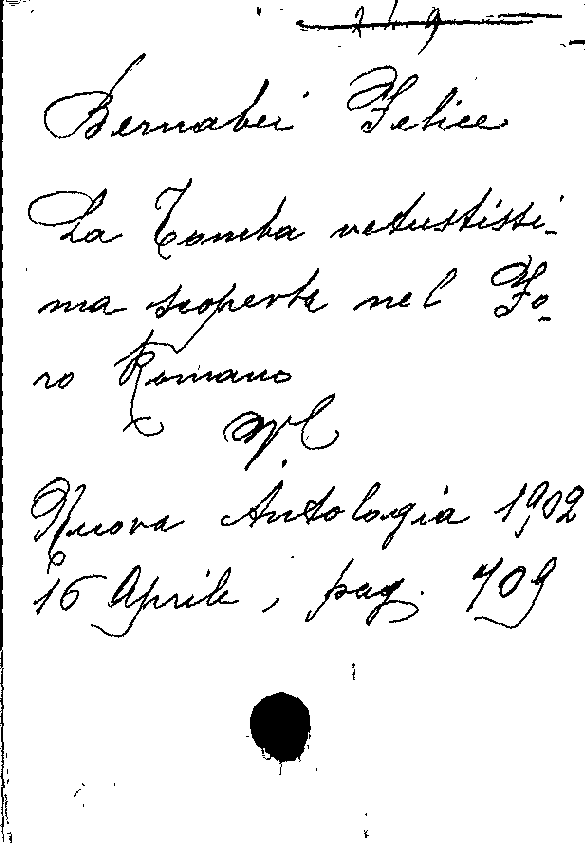 Bernabei Felice
La Tomba vetustissi-
ma scoperta nel Fo-
ro Romano
Nuova Antologia 1902
16 Aprile, pag. 709